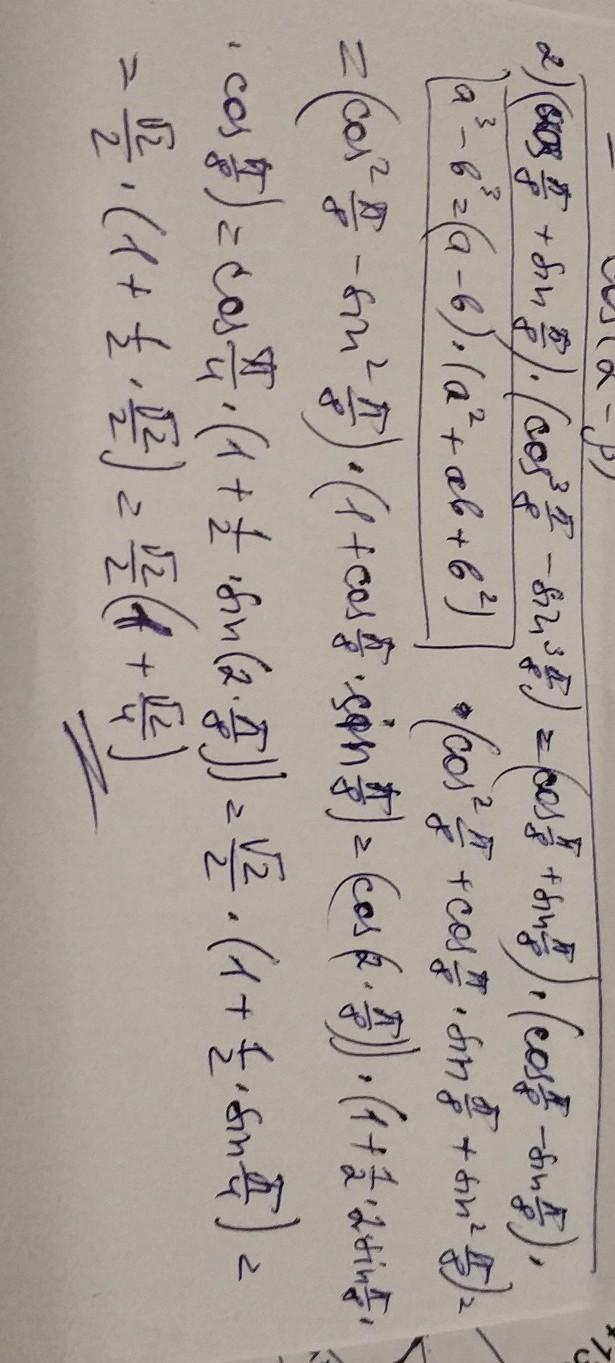 cos(α - β)
2) (cos π/8 + sin π/8) · (cos³ π/8 - sin³ π/8) = (cos π/8 + sin π/8) · (cos π/8 - sin π/8) ·
a³ - b³ = (a - b) · (a² + ab + b²)
· (cos² π/8 + cos π/8 · sin π/8 + sin² π/8) =
= (cos² π/8 - sin² π/8) · (1 + cos π/8 · sin π/8) = (cos(2 · π/8)) · (1 + 1/2 · 2 sin π/8 ·
· cos π/8) = cos π/4 · (1 + 1/2 · sin(2 · π/8)) = √2/2 · (1 + 1/2 · sin π/4) =
= √2/2 · (1 + 1/2 · √2/2) = √2/2 (1 + √2/4)